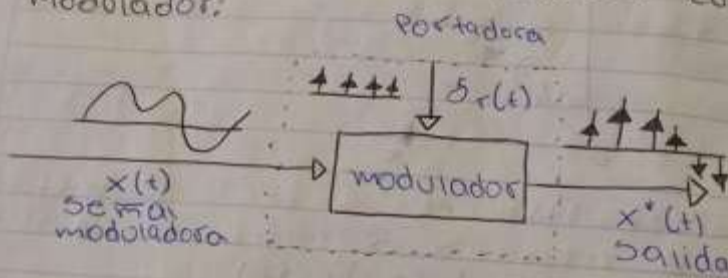 modulador.
Portadora
δτ(t)
x(t)
señal
moduladora
modulador
x*(t)
Salida